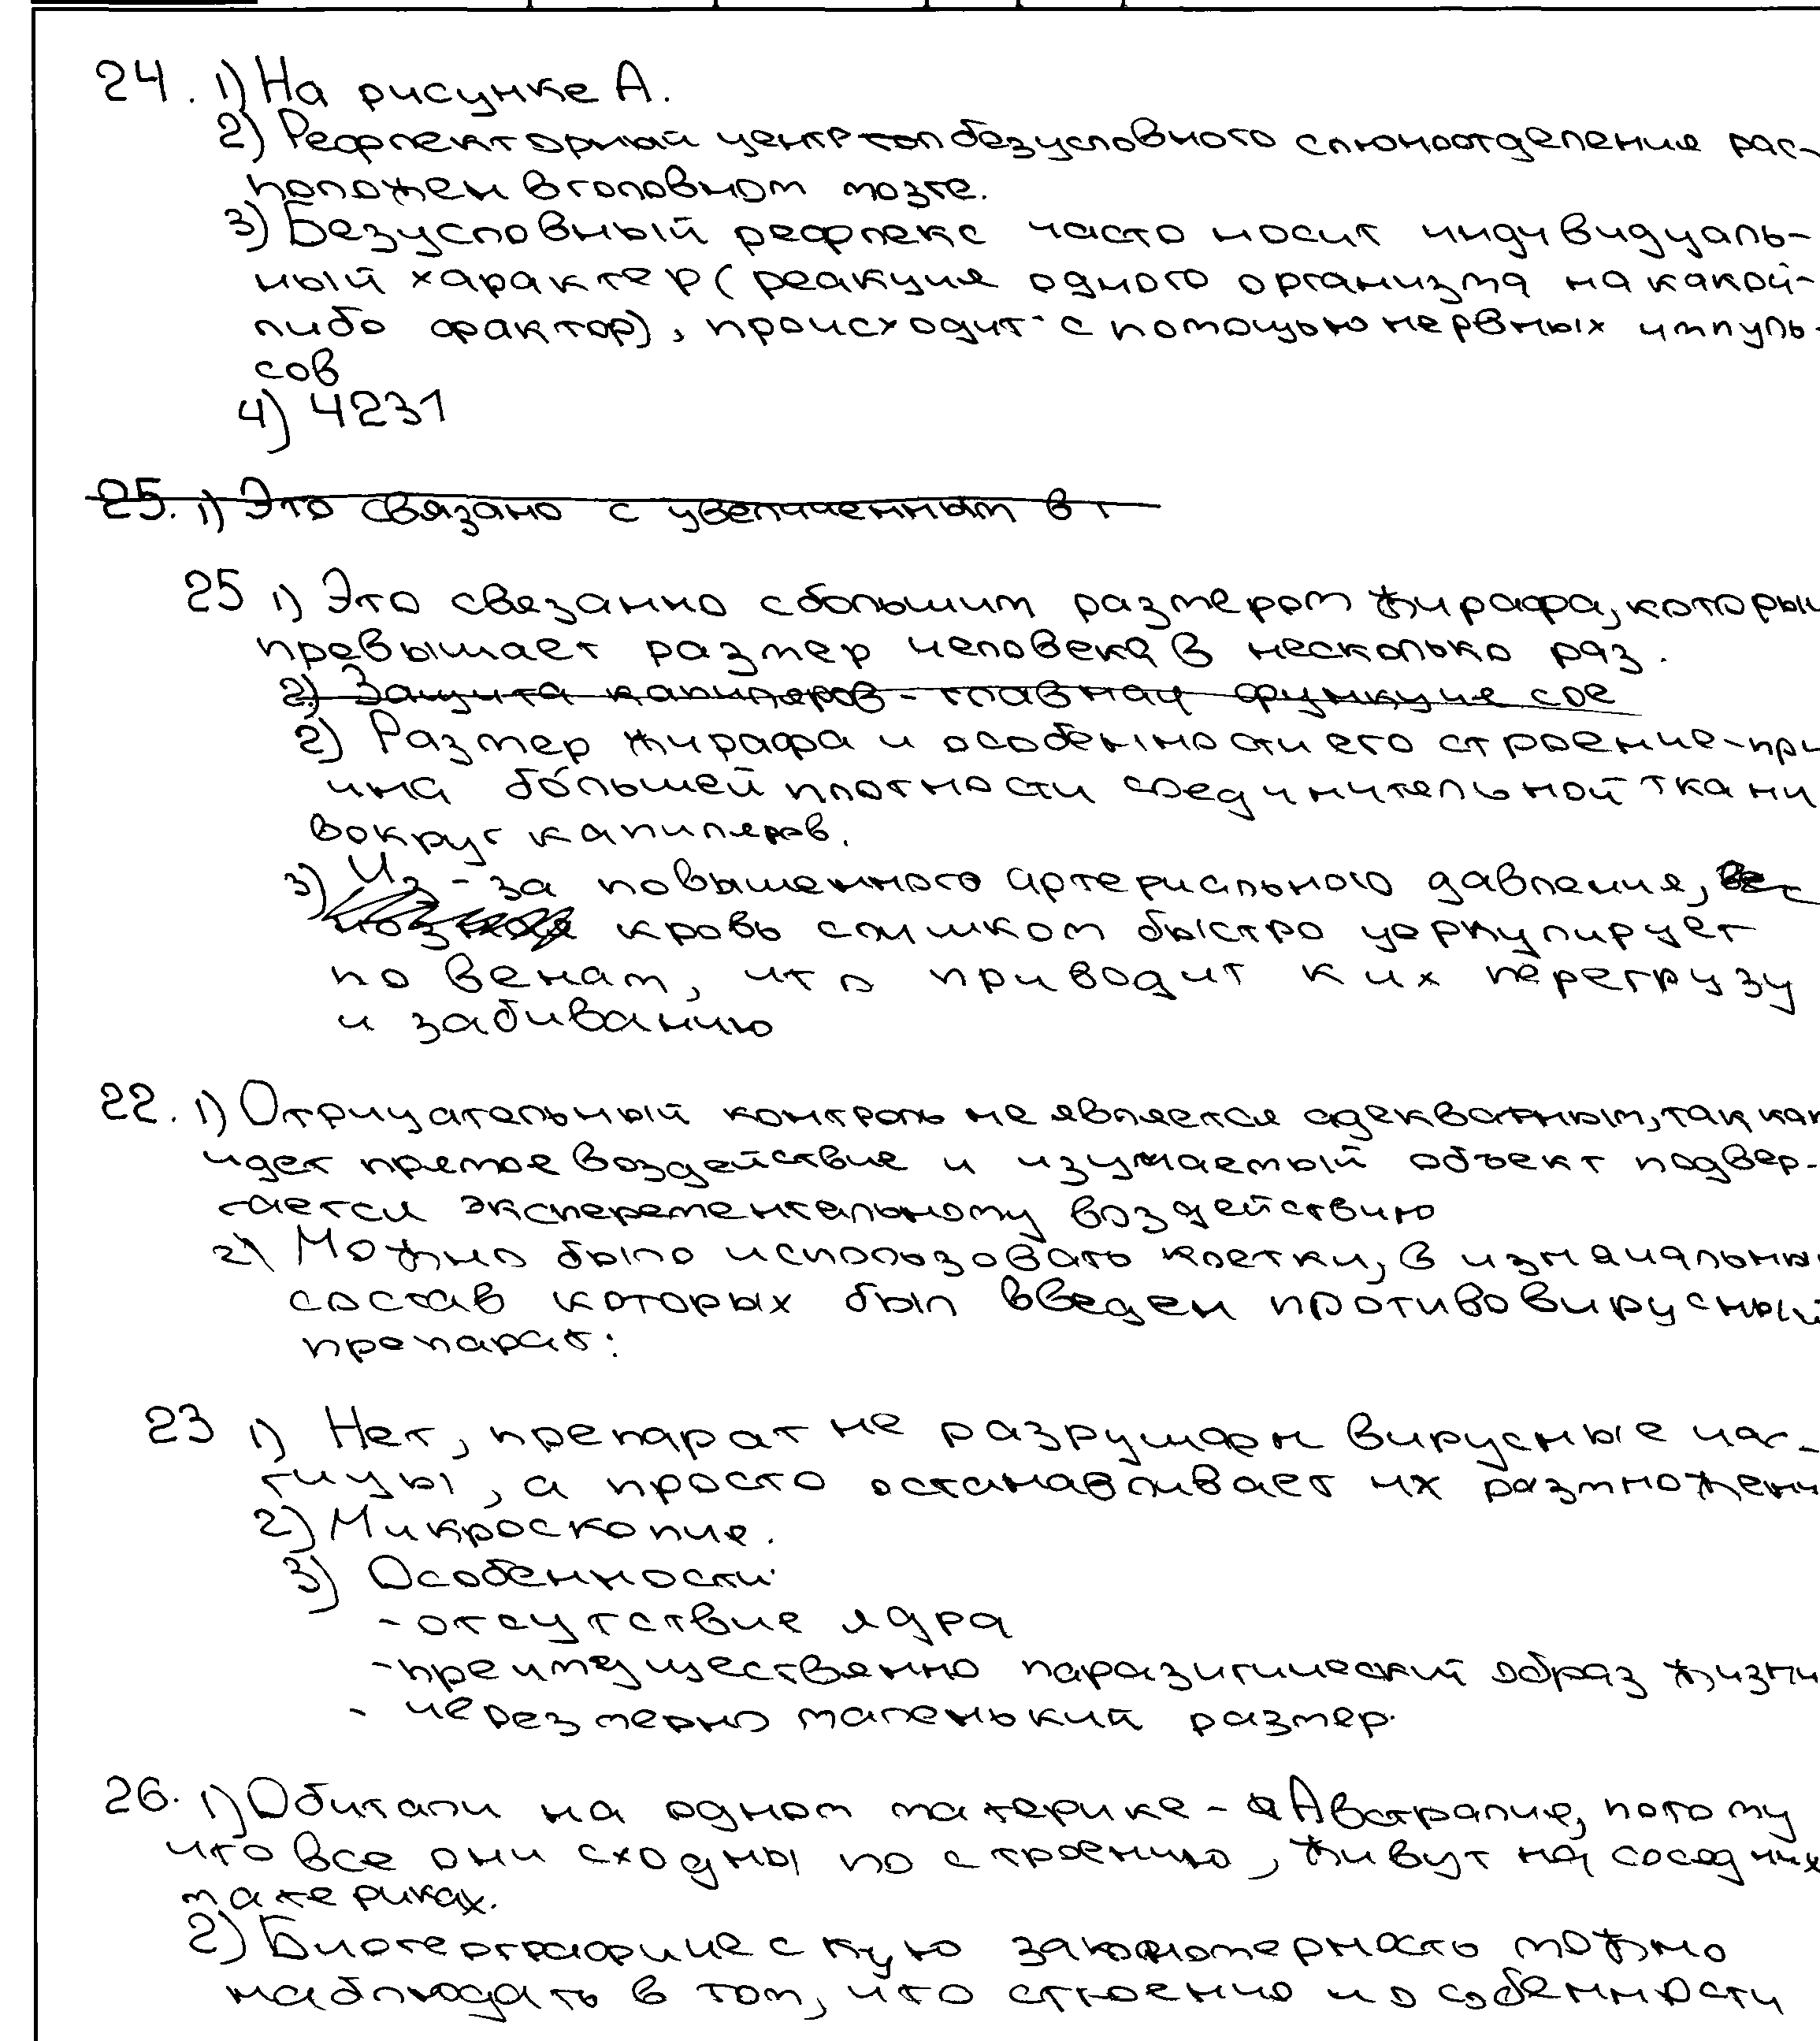 24. 1) На рисунке А.
2) Рефлекторный центр безусловного слюноотделения рас-
положен в головном мозге.
3) Безусловный рефлекс часто носит индивидуаль-
ный характер (реакция одного организма на какой-
либо фактор), происходит с помощью нервных импуль-
сов
4) 4231
25. 1) Это связано с увеличенным в т
25 1) Это связанно с большим размером жирафа, которы
превышает размер человека в несколько раз.
2) Защита капиляров - главная функция сое
2) Размер жирафа и особенности его строение - при
чина бо́льшей плотности соединительной ткани
вокруг капиляров.
3) Из-за повышенного артериального давления,
кровь слишком быстро циркулирует
по венам, что приводит к их перегрузу
и забиванию
22. 1) Отрицательный контроль не является адекватным, так как
идет прямое воздействие и изучаемый объект подвер-
гается эксперементальному воздействию
2) Можно было использовать клетки, в изначальны
состав которых был введен противовирусный
препарат.
23 1) Нет, препарат не разрушарн вирусные час-
тицы, а просто останавливает их размножени
2) Микроскопия.
3) Особенности:
- отсутствие ядра
- преимущественно паразитический образ жизни
- черезмерно маленький размер.
26. 1) Обитали на одном материке - Австралия, потому
что все они сходны по строению, живут на соседних
материках.
2) Биогеографическую закономерность можно
наблюдать в том, что строению и особенности